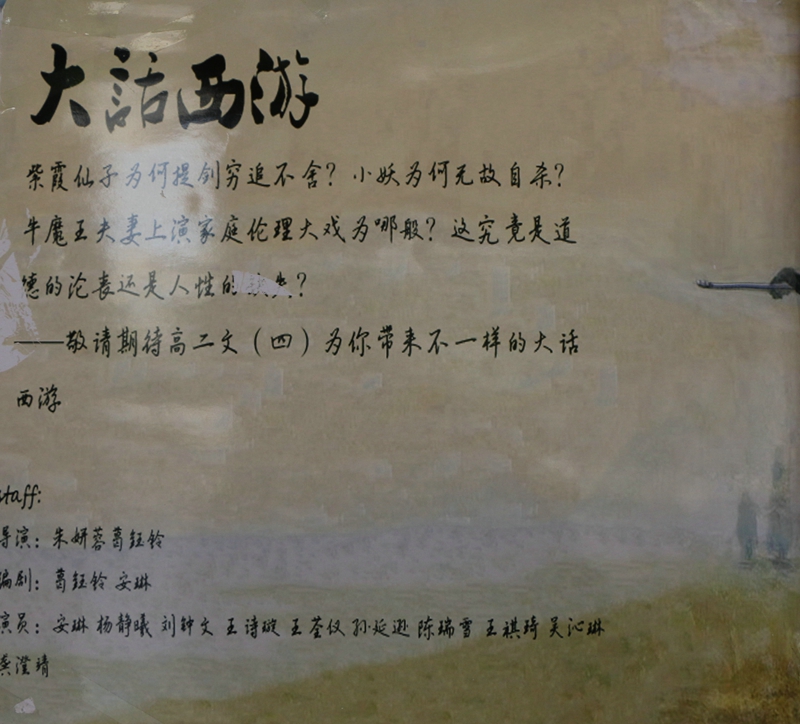 大话西游
紫霞仙子为何提剑穷追不舍？小妖为何无故自杀？
牛魔王夫妻上演家庭伦理大戏为哪般？这究竟是道
德的沦丧还是人性的缺失？
——敬请期待高二文（四）为你带来不一样的大话
西游
staff:
导演：朱妍蓉葛钰铃
编剧：葛钰铃 安琳
演员：安琳 杨静曦 刘钟文 王诗璇 王荃仪 孙延逊 陈瑞雪 王祺琦 吴沁琳
龚滢靖